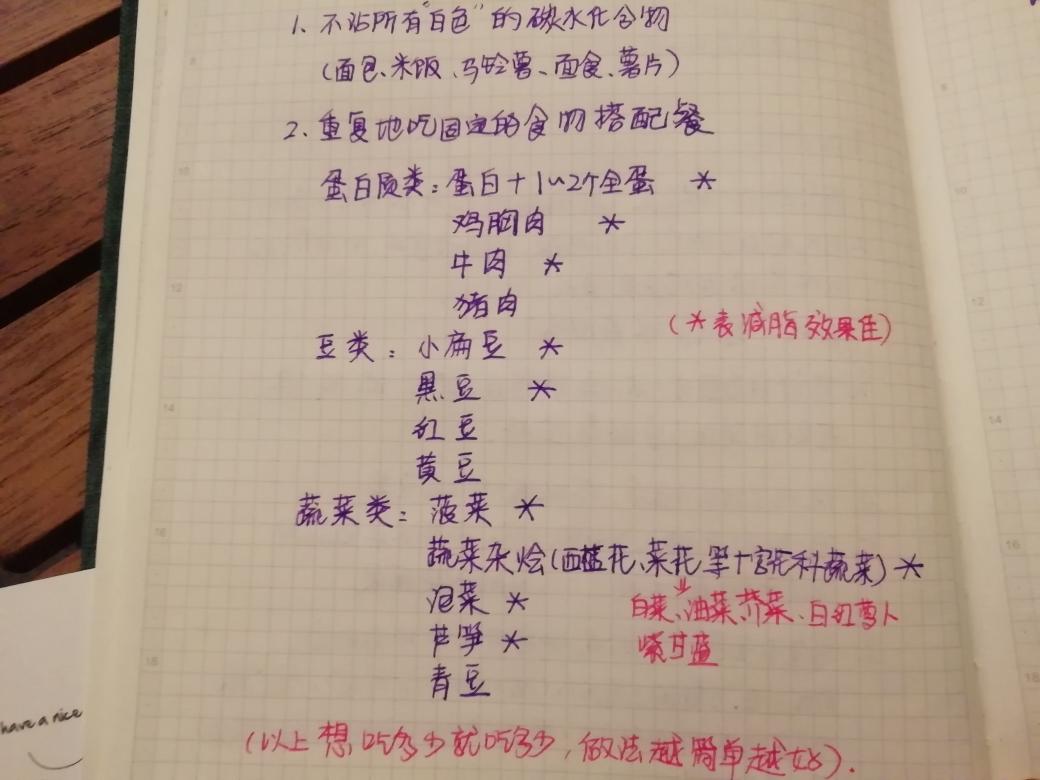 1、不沾所有"白色"的碳水化合物
(面包、米饭、马铃薯、面食、薯片)
2、重复地吃固定的食物搭配餐
蛋白质类：蛋白+1~2个全蛋 *
鸡胸肉 *
牛肉 *
猪肉
(*表减脂效果佳)
豆类：小扁豆 *
黑豆 *
红豆
黄豆
蔬菜类：菠菜 *
蔬菜杂烩(西蓝花、菜花、等十字花科蔬菜) *
泡菜 *
白菜、油菜、芥菜、白红萝卜
芦笋 *
紫甘蓝
青豆
have a nice
(以上想吃多少就吃多少，做法越简单越好).
8
10
12
14
16
18
8
10
12
14
16
18